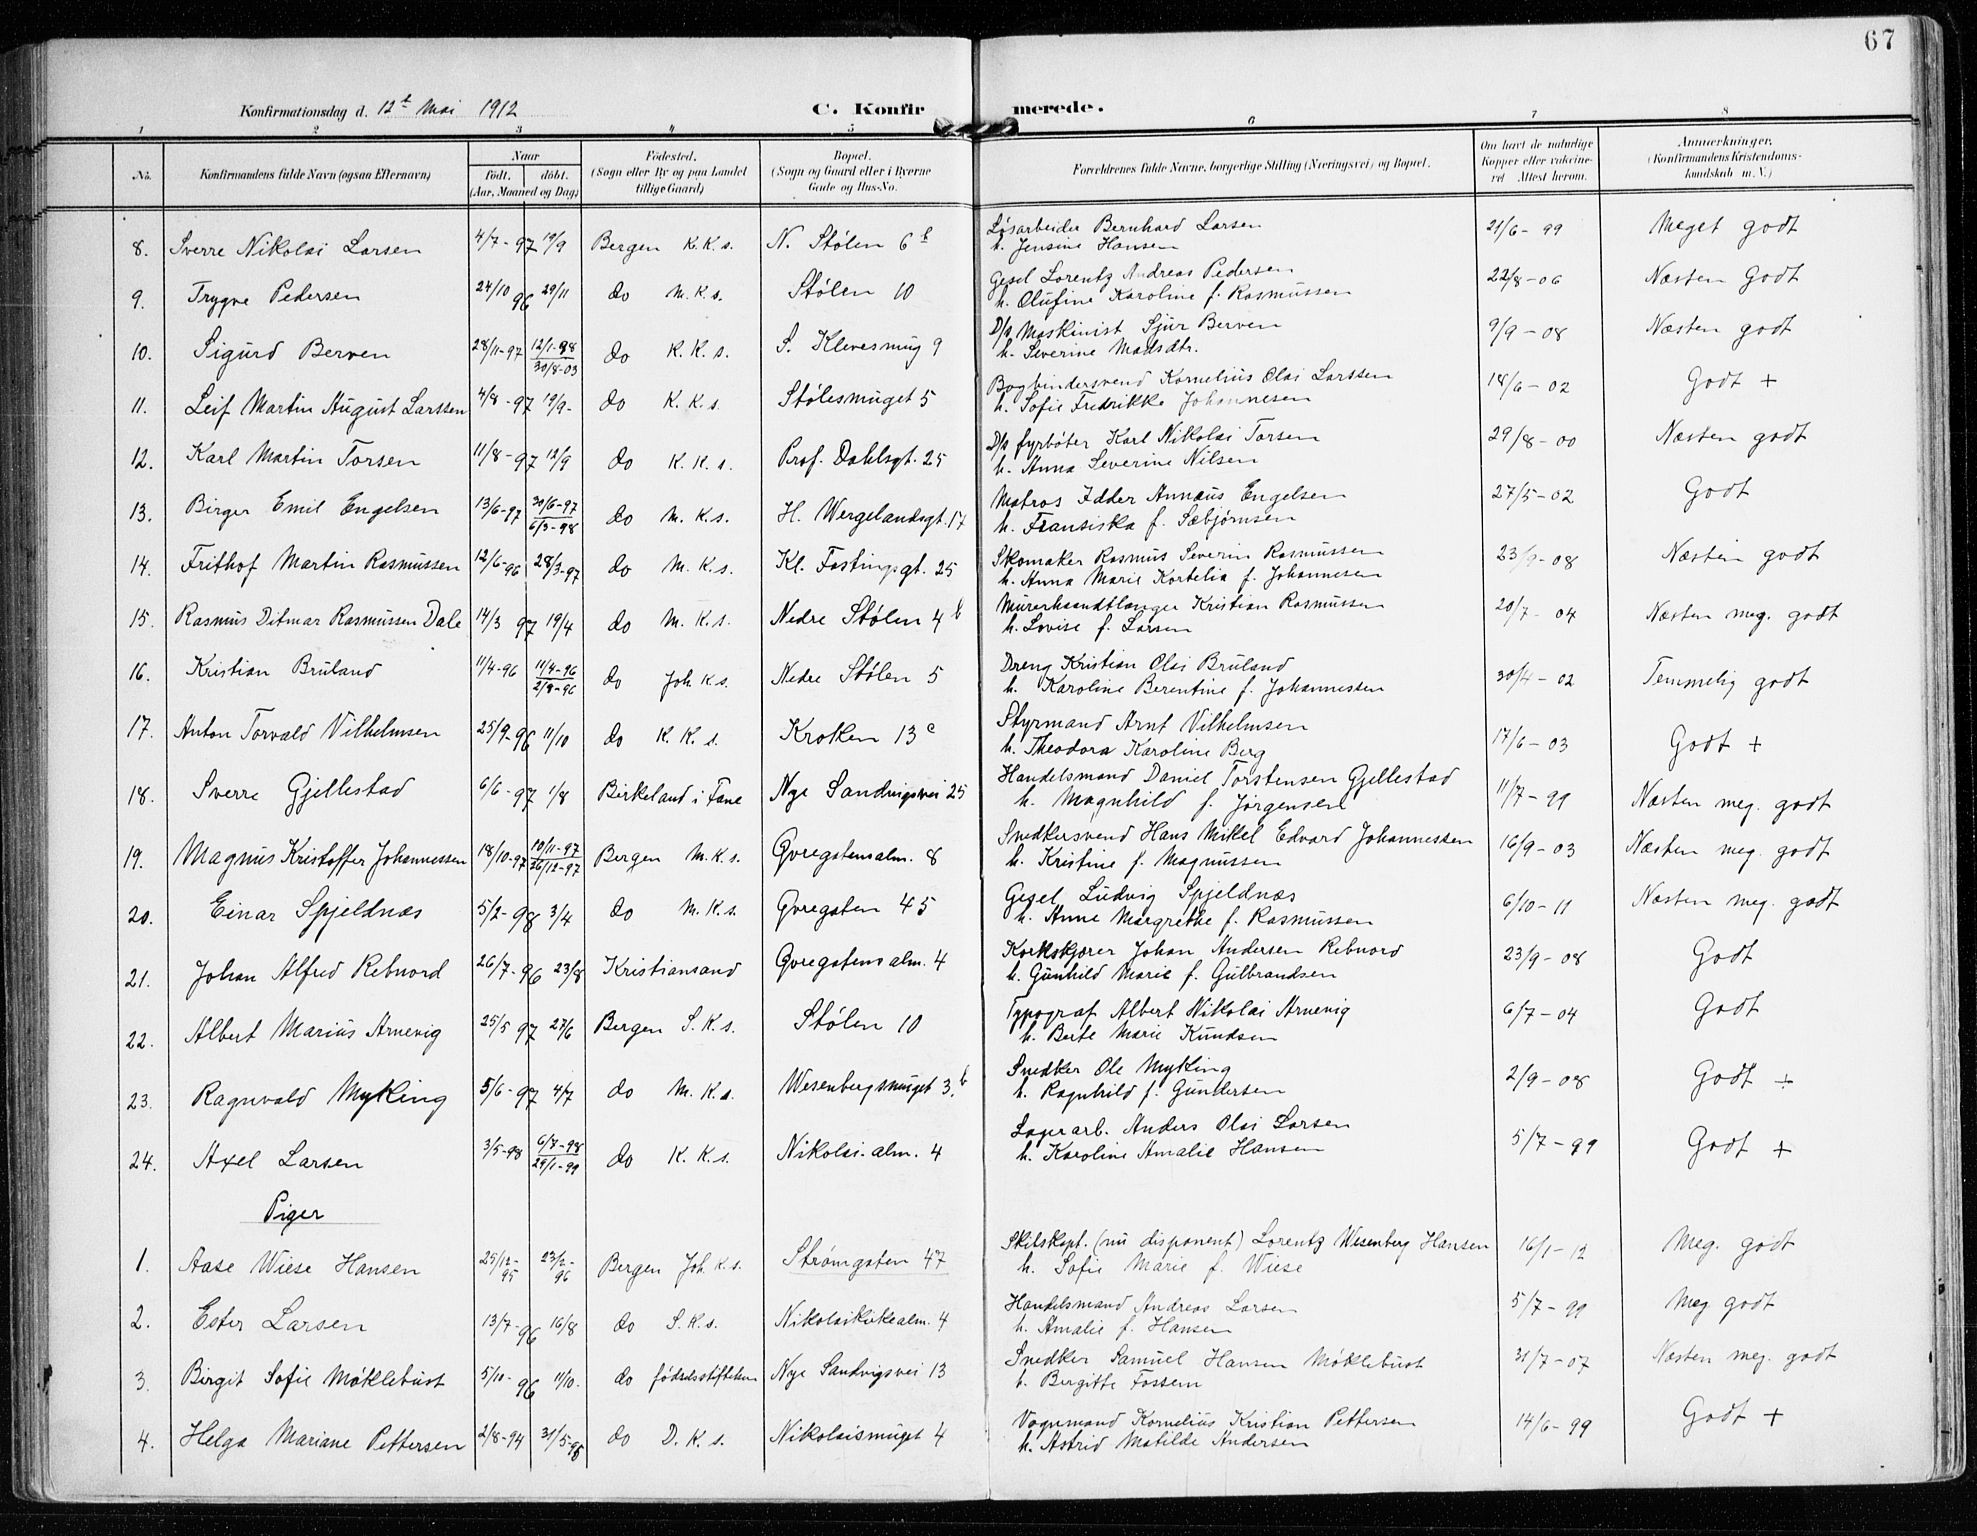 67
Konfirmationsdag d. 12t Mai 1912 C. Konfirmerede.
1 2 3 4 5 6 7 8
No. Konfirmandens fulde Navn (ogsaa Efternavn) Naar født. døbt. (Aar, Maaned og Dag) Fødested. (Sogn eller By og paa Landet tillige Gaard) Bopæl. (Sogn og Gaard eller i Byerne Gade og Hus-No. Forældrenes fulde Navne, borgerlige Stilling (Næringsvei) og Bopæl. Om havt de naturlige Kopper eller vakcineret Attest herom. Anmærkninger. (Konfirmandens Kristendomskundskab m. V.)
8. Sverre Nikolai Larsen 4/7-97 19/9 Bergen K.K.s. N. Stølen 6b Løsarbeider Bernhard Larsen 21/6-99 Meget godt
h. Jensine Hansen
9. Trygve Pedersen 24/10 96 29/11 do M.K.s. Stølen 10 Gesel Lorentz Andreas Pedersen 22/8-06 Næsten Godt
h. Olufine Karoline f. Rasmussen
10. Sigurd Berven 28/11-97 12/1-98 30/8-03 do K.K.s. S. Klevesmug 9 D/q Maskinist Sjur Berven 9/9-08 Næsten godt
h. Severine Madsdtr.
11. Leif Martin August Larssen 4/8-97 19/9- do K.K.s. Stølesmuget 5 Bogbindersvend Kornelius Olai Larssen 18/6-02 Godt +
h. Sofie Fredrikke Johannesen
12. Karl Martin Torsen 11/8-97 12/9 do K.K.s. Prof. Dahlsgt. 25 D/q fyrbøter Karl Nikolai Torsen 29/8-00 Næsten godt
h. Anna Severine Nilsen
13. Birger Emil Engelsen 13/6-97 30/6-97 6/3-98 do M.K.s. H. Wergelandsgt. 17 Matros Edder Annæus Engelsen 27/5-02 Godt
h. Fransiska f. Sæbjørnsen
14. Frithof Martin Rasmussen 12/6-96 28/3-97 do M.K.s. Kl. Fastingsgt. 25 Skomaker Rasmus Severin Rasmussen 23/9-08 Næsten godt
h. Anna Marie Kortelia f. Johannesen
15. Rasmus Ditmar Rasmussen Dale 14/3 97 19/4 do M.K.s. Nedre Stølen 4b Murerhaandtlanger Kristian Rasmussen 20/7-04 Næsten meg. godt
h. Lovise f. Larsen
16. Kristian Bruland 11/4-96 11/4-96 2/8-96 do Joh.K.s. Nedre Stølen 5 Dreng Kristian Olai Bruland 30/4-02 Temmelig godt
h. Karoline Berentine f. Johannessen
17. Anton Torvald Vilhelmsen 25/9-96 11/10 do K.K.s. Kroken 13c Styrmand Arnt Vilhelmsen 17/6-03 Godt +
h. Theodora Karoline Berg
18. Sverre Gjellestad 6/6-97 1/8 Birkeland i Fane Nye Sandvigsvei 25 Handelsmand Daniel Torstensen Gjellestad 11/7-99 Næsten meg. godt
h. Magnhild f. Jørgensen
19. Magnus Kristoffer Johannessen 18/10-97 10/11-97 26/12-97 Bergen M.K.s. Øvregatens alm. 8 Snedkersvend Hans Mikel Edvard Johannessen 16/9-03 Næsten meg. godt
h. Kristine f. Magnussen
20. Einar Spjeldnæs 5/2-98 3/4 do M.K.s. Øvregaten 45 Gesel Ludvig Spjeldnæs 6/10-11 Næsten meg. godt
h. Anne Margrethe f. Rasmussen
21. Johan Alfred Rebnord 26/7-96 23/8 Kristiansand Øvregatens alm. 4 Korkskjærer Johan Andersen Rebnord 23/9-08 Godt
h. Gunhild Marie f. Gulbrandsen
22. Albert Marius Arnevig 25/5 97 27/6 Bergen S.K.s. Stølen 10 Typograf Albert Nikolai Arnevig 6/7-04 Godt
h. Berte Marie Knudsen
23. Ragnvald Myking 5/6-97 4/7 do M.K.s. Wesenbergsmuget 3b Snedker Ole Myking 2/9-08 Godt +
h. Ragnhild f. Gundersen
24. Axel Larsen 3/5-98 6/7-98 29/1-99 do K.K.s. Nikolai-alm. 4 Lagerarb. Anders Olai Larsen 5/7-99 Godt +
h. Karoline Amalie Hansen
Piger
1. Aase Wiese Hansen 25/12-95 23/2-96 Bergen Joh.K.s. Strømgaten 47 Skibskapt. (nu disponent) Lorentz Wesenberg Hansen 16/1-12 Meg. godt
h. Sofie Marie f. Wiese
2. Ester Larsen 13/7-96 16/8 do S.K.s. Nikolaikirkealm. 4 Handelsmand Andreas Larsen 5/7-99 Meg godt
h. Amalie f. Hansen
3. Birgit Sofie Møklebust 5/10-96 11/10. do fødselsstiftelsen Nye Sandvigsvei 13 Snedker Samuel Hansen Møklebust 31/7-07 Næsten meg. godt
h. Bergitte Fossem
4. Helga Mariane Pettersen 2/8-94 31/5-96 do D.K.s. Nikolaismuget 4 Vognmand Kornelius Kristian Pettersen 14/6-99 Godt +
h. Astrid Matilde Andersen